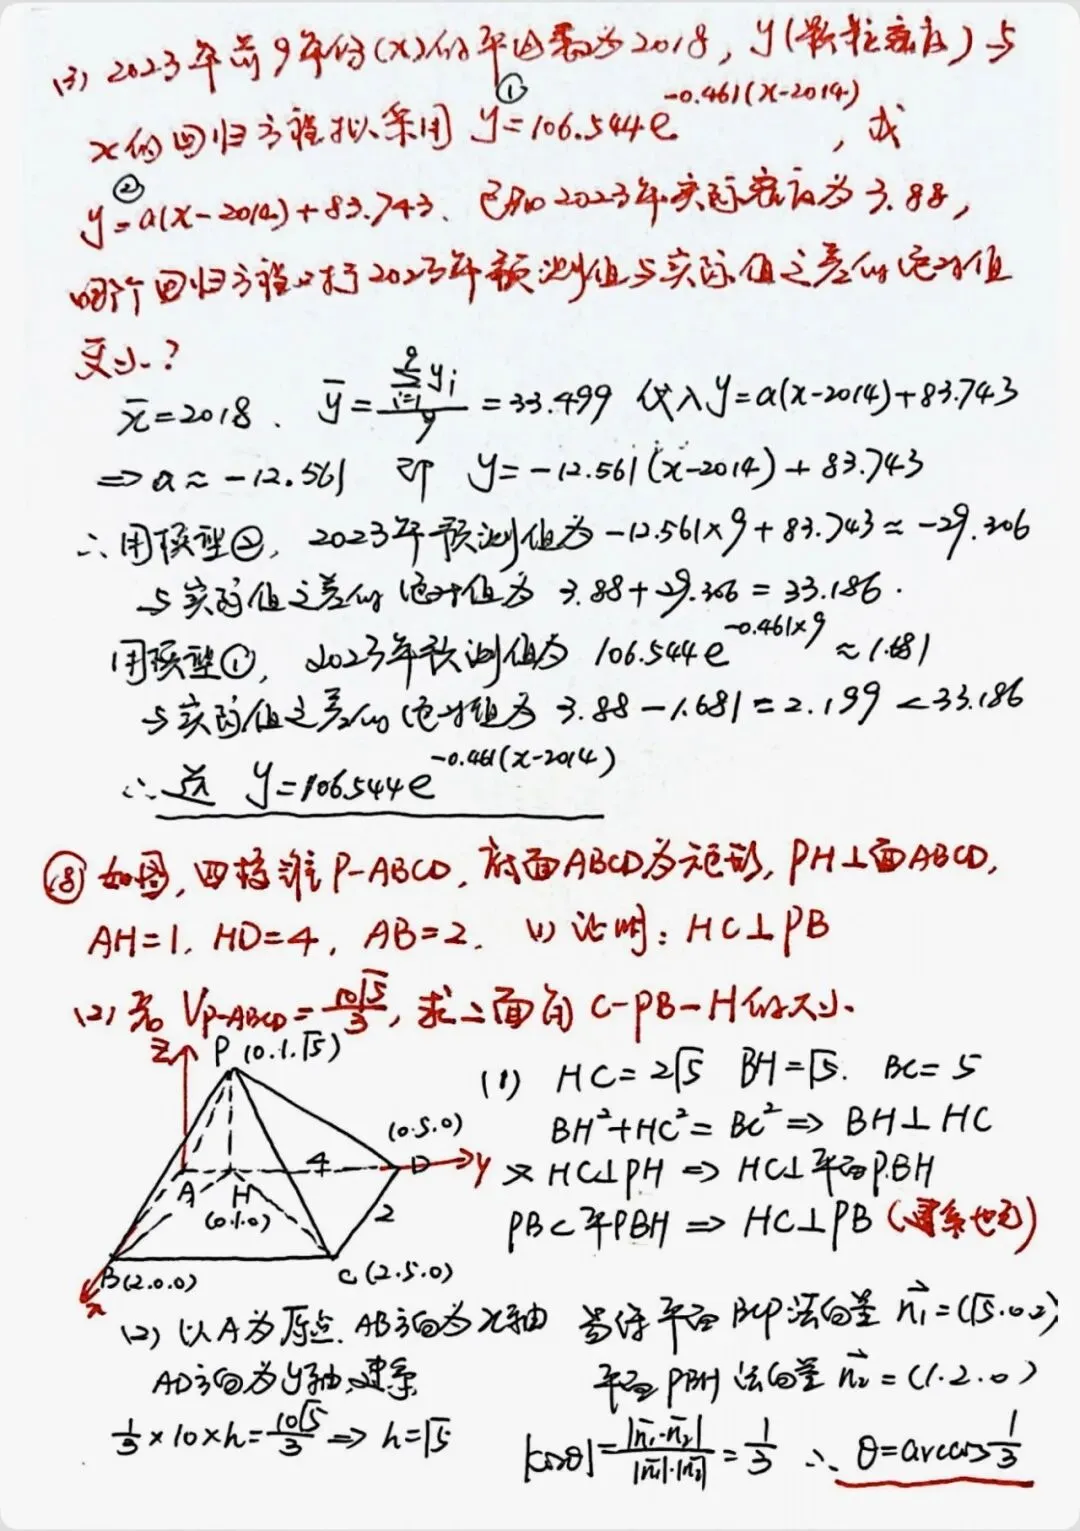 (3) 2023年前9年份(x)的平均数为2018, y(颗粒密度)与
x的回归方程拟采用 ①y=106.544e^{-0.461(x-2014)}, 或
②y=a(x-2014)+83.743. 已知2023年实际密度为3.88,
哪个回归方程对于2023年预测值与实际值之差的绝对值
更小?
x̄=2018. ȳ=\frac{\sum_{i=1}^{9}y_i}{9}=33.499 代入y=a(x-2014)+83.743
⇒a≈-12.561 即 y=-12.561(x-2014)+83.743
∴用模型②, 2023年预测值为-12.561×9+83.743≈-29.306
与实际值之差的绝对值为 3.88+29.306=33.186.
用模型①, 2023年预测值为 106.544e^{-0.461×9}≈1.681
与实际值之差的绝对值为 3.88-1.681=2.199<33.186
∴选 y=106.544e^{-0.461(x-2014)}
⑱ 如图, 四棱锥P-ABCD, 底面ABCD为矩形, PH⊥面ABCD,
AH=1. HD=4, AB=2. (1)证明: HC⊥PB
(2)若 V_{P-ABCD}=\frac{10\sqrt{5}}{3}, 求二面角C-PB-H的大小.
z P(0.1.√5)
(0.5.0)
A H 4 D y
(0.1.0) 2
B(2.0.0) C(2.5.0)
x
(1) HC=2√5 BH=√5. BC=5
BH²+HC²=BC²⇒BH⊥HC
又HC⊥PH ⇒ HC⊥平面PBH
PB⊂平PBH ⇒ HC⊥PB (建系也可)
(2) 以A为原点. AB方向为x轴
AD方向为y轴,建系
\frac{1}{3}×10×h=\frac{10\sqrt{5}}{3}⇒h=√5
易得平面BCP法向量 \vec{n_1}=(√5.0.2)
平面PBH法向量 \vec{n_2}=(1.2.0)
|cosθ|=\frac{|\vec{n_1}·\vec{n_2}|}{|\vec{n_1}|·|\vec{n_2}|}=\frac{1}{3} ∴ θ=arccos\frac{1}{3}